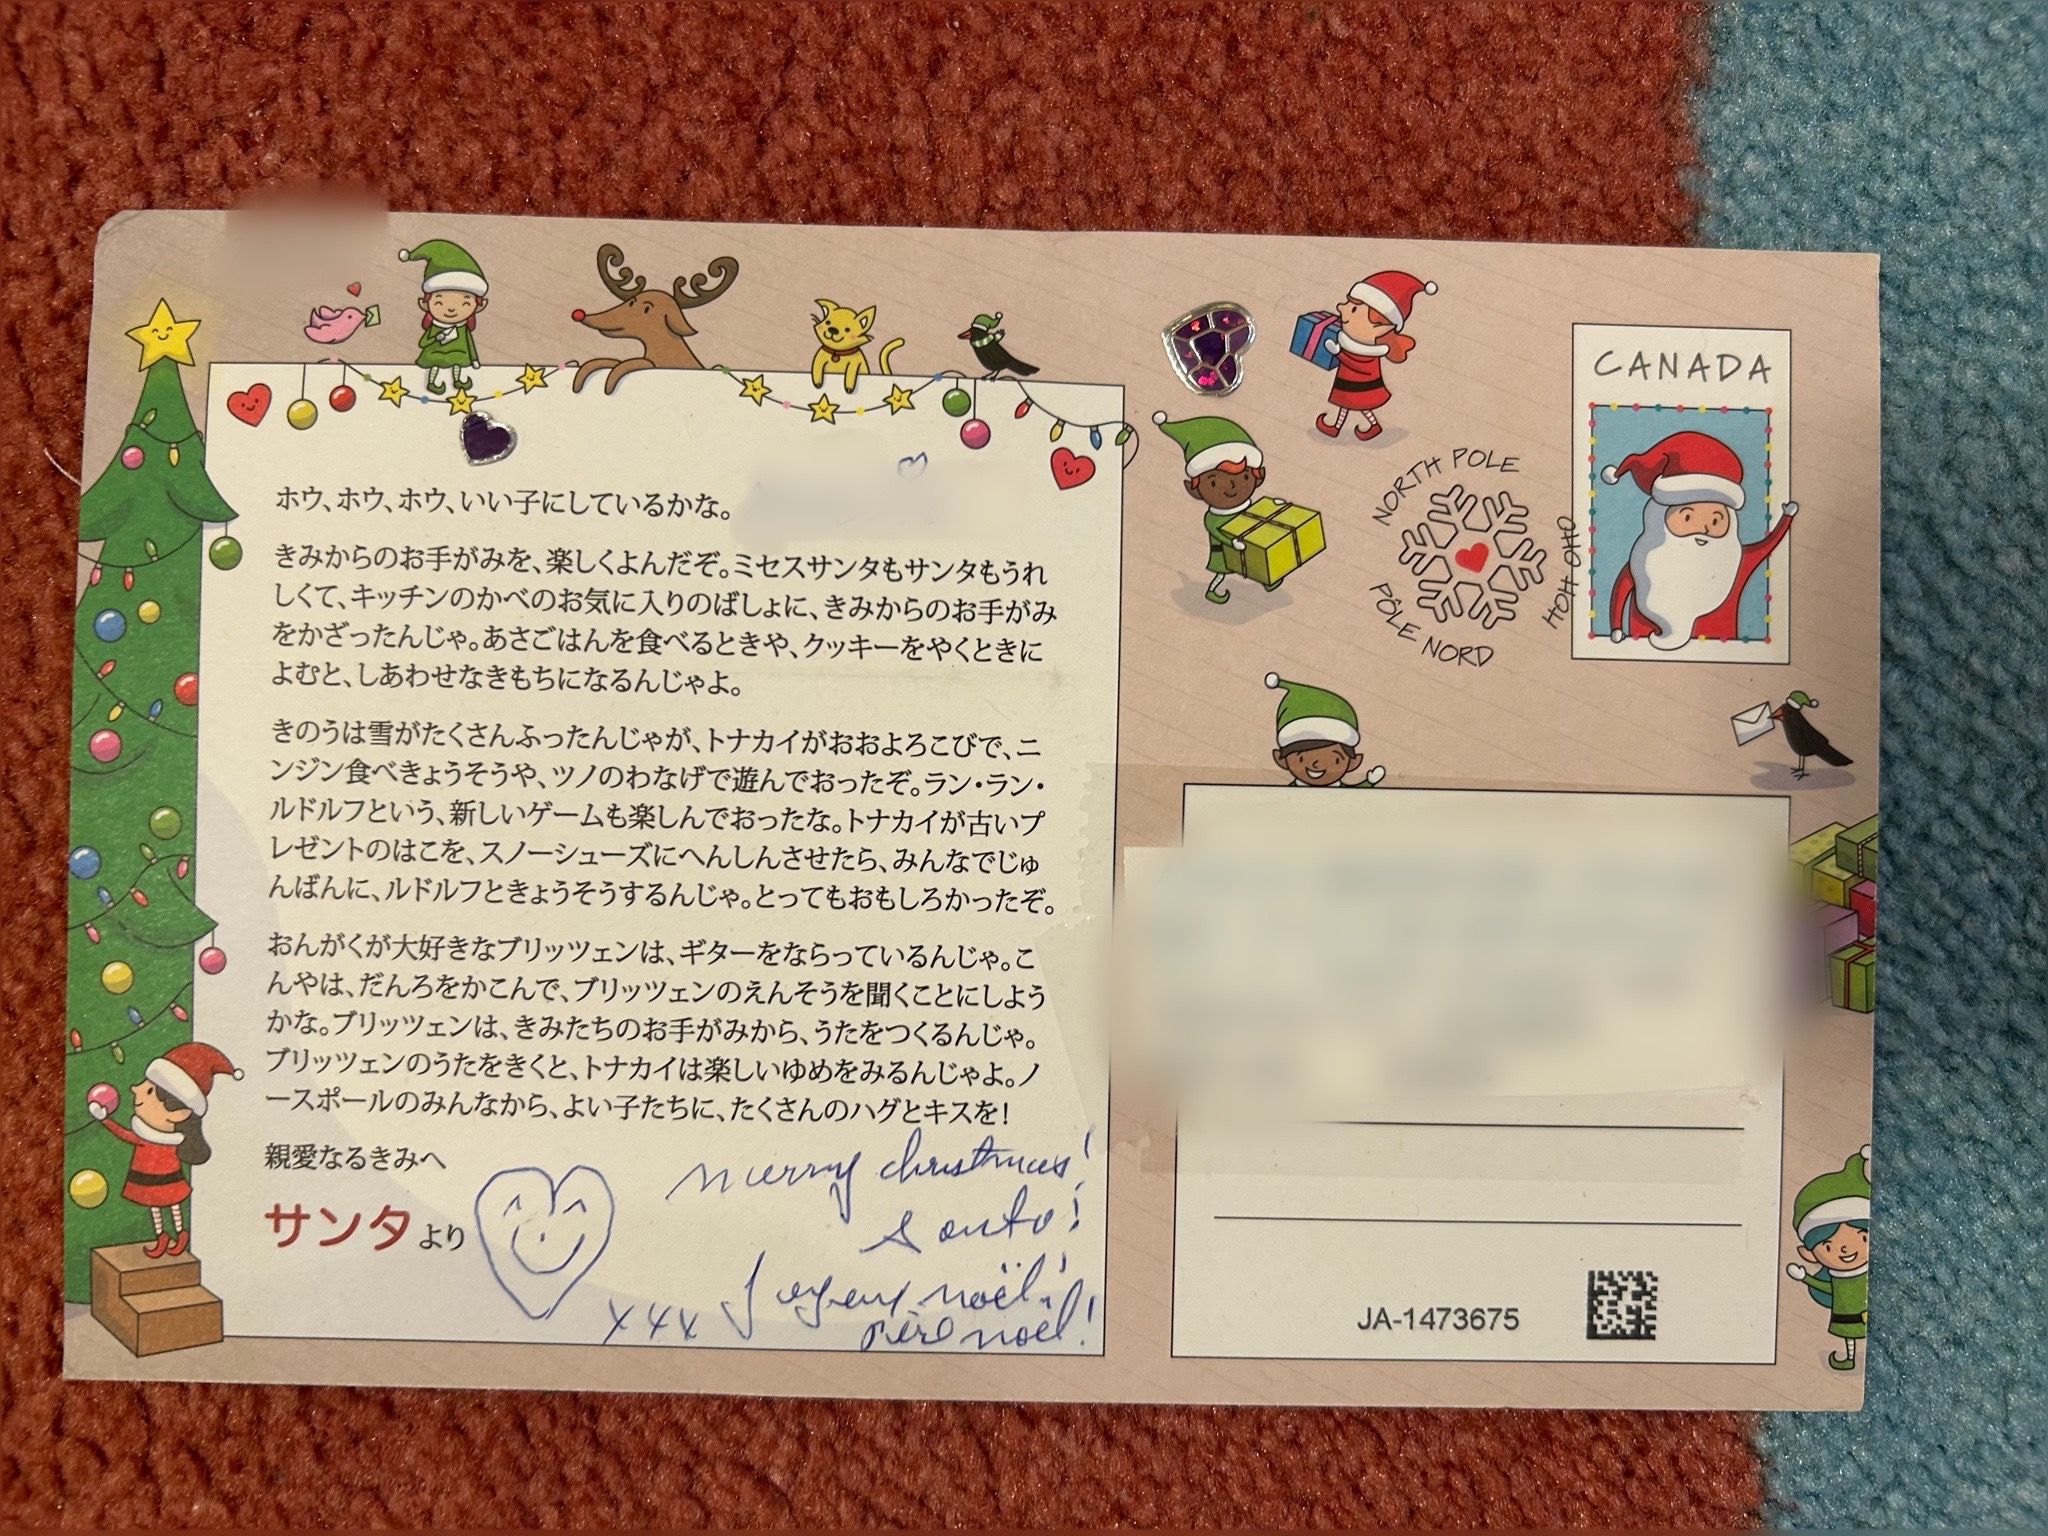 ホウ、ホウ、ホウ、いい子にしているかな。
きみからのお手がみを、楽しくよんだぞ。ミセスサンタもサンタもうれ
しくて、キッチンのかべのお気に入りのばしょに、きみからのお手がみ
をかざったんじゃ。あさごはんを食べるときや、クッキーをやくときに
よむと、しあわせなきもちになるんじゃよ。
きのうは雪がたくさんふったんじゃが、トナカイがおおよろこびで、ニ
ンジン食べきょうそうや、ツノのわなげで遊んでおったぞ。ラン・ラン・
ルドルフという、新しいゲームも楽しんでおったな。トナカイが古いプ
レゼントのはこを、スノーシューズにへんしんさせたら、みんなでじゅ
んばんに、ルドルフときょうそうするんじゃ。とってもおもしろかったぞ。
おんがくが大好きなブリッツェンは、ギターをならっているんじゃ。こ
んやは、だんろをかこんで、ブリッツェンのえんそうを聞くことにしよう
かな。ブリッツェンは、きみたちのお手がみから、うたをつくるんじゃ。
ブリッツェンのうたをきくと、トナカイは楽しいゆめをみるんじゃよ。ノ
ースポールのみんなから、よい子たちに、たくさんのハグとキスを！
親愛なるきみへ
サンタより
merry christmas!
santa!
xxx Joyeux noël!
père noël!
CANADA
NORTH POLE
PÔLE NORD
HOH OHO
JA-1473675